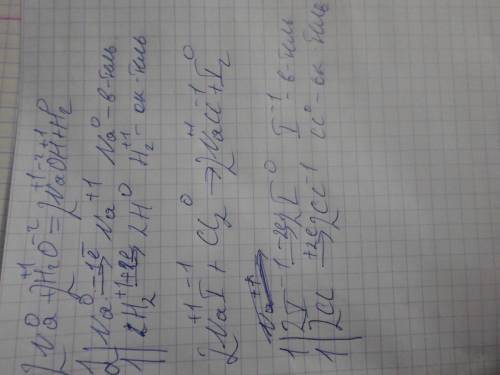 2Na⁰ + 2H₂⁺¹O⁻² = 2Na⁺¹O⁻²H⁺¹ + H₂⁰
2| Na⁰ –1e̅→ Na⁺¹ Na⁰ – в-тель
1| 2H₂⁺¹ +2e→ 2H⁰ H₂⁺¹ – ок-тель
2Na⁺¹I⁻¹ + Cl₂⁰ → 2Na⁺¹Cl⁻¹ + I₂⁰
1| 2I⁻¹ –2e→ 2I⁰ I⁻¹ – в-тель
1| 2Cl +2e→ 2Cl⁻¹ Cl⁰ – ок-тель